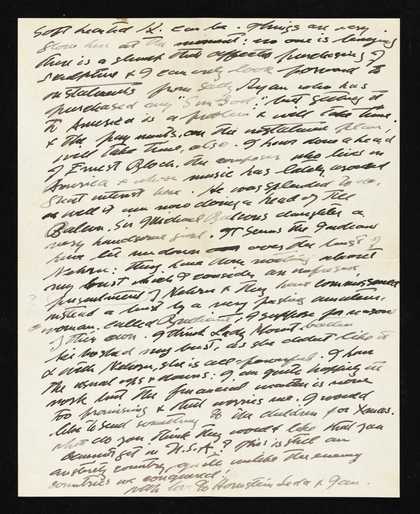 soft hearted K. can be. Things are very
slow here at the moment: no one is buying
there is a slump that affects purchasing of
sculpture & I can only look forward to
instalments from Sally Ryan who has
purchased my "Sun God", but getting it
to America is a problem & will take time.
& the payments, on the instalment plan,
will take time, also. I have done a head
of Ernest Bloch. The composer who lives in
America & whose music has lately aroused
great interest here. He was splendid to do.
as well I am now doing a head of Jill
Balcon. Sir Michael Balcon's daughter a
very handsome girl. It seems the Indians
have let me down over the bust of
Nehru: they have done nothing about
my bust which I consider an
presentment of Nehru & they have commissioned
instead a bust by a very amateur
woman, called I suppose for reasons
of their own. I think Lady Mountbatten
his my bust, as she didn't like it
& with Nehru, she is all-powerful. I have
the usual ups & downs. I am quite happy in
work but the financial is never
too promising & that worries me. I would
like to send something to the children for Xmas.
what do you think they would like that you
cannot get in U.S.A.? This is still an
austerity country quite unlike the enemy
countries we conquered!
with love to Hornstein Leda & Ian.